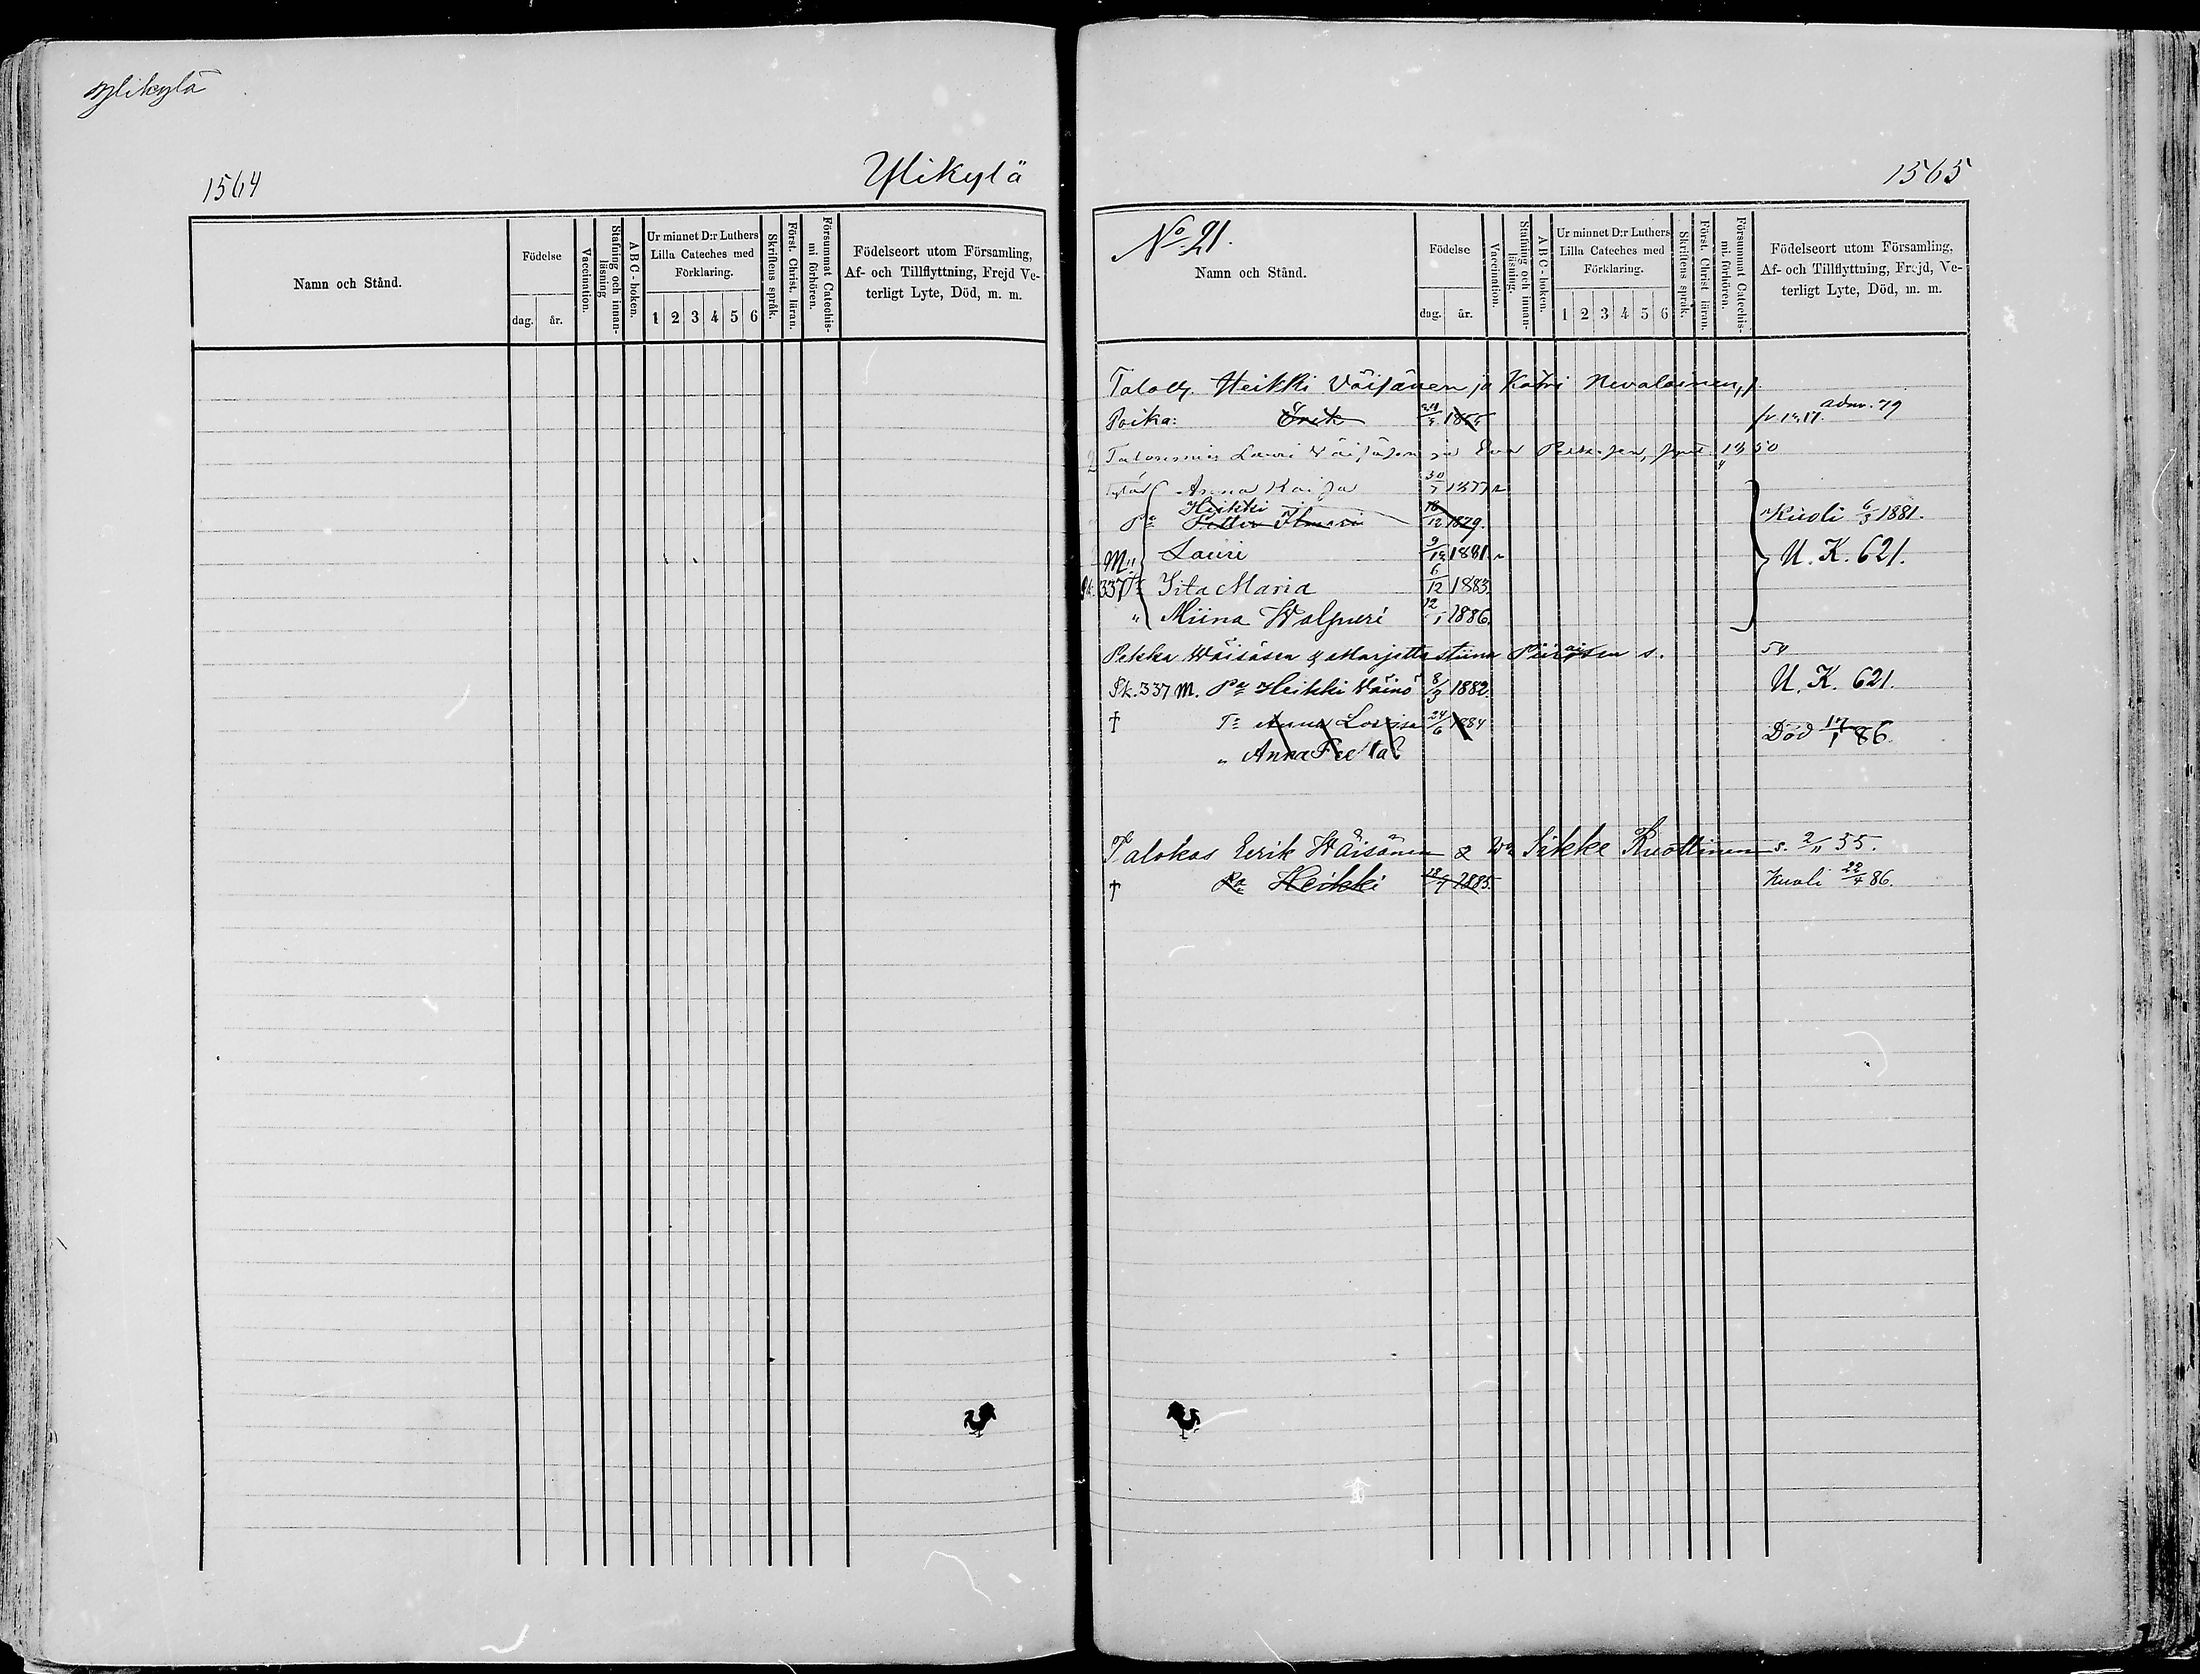 Ylikylä
1564
Ylikylä
Namn och Stånd.
Födelse
dag.
år.
Vaccination.
Stafning och innan-
läsning
ABC-boken.
Ur minnet D:r Luthers
Lilla Cateches med
Förklaring.
1 2 3 4 5 6
Skriftens språk.
Först. Christ. läran.
Försummat Catechis-
mi förhören.
Födelseort utom Församling,
Af- och Tillflyttning, Frejd Ve-
terligt Lyte, Död, m. m.
1565
No 21.
Namn och Stånd.
Födelse
dag.
år.
Vaccination.
Stafning och innan-
läsning.
ABC-boken.
Ur minnet D:r Luthers
Lilla Cateches med
Förklaring.
1 2 3 4 5 6
Skriftens språk.
Först. Christ läran.
Försummat Catechis-
mi förhören.
Födelseort utom Församling,
Af- och Tillflyttning, Frejd, Ve-
terligt Lyte, Död, m. m.
Heikki Väisänen ja Katri Nevalainen,
Poika: Erik
Lauri Väisänen ja Eva 50
Anna Kaisa 30/7 1877
Heikki
Pa Petter Ilmari 18/12 1879. Kuoli 6/3 1881.
M. Lauri 9/12 1881 U. K. 621.
337 Iita Maria 6/12 1883.
" Miina Walpuri 12/1 1886.
Pekka Wäisäsen & Marjetta Stiina s. 54
Sk. 337 M. Pa Heikki Väinö 8/3 1882. U. K. 621.
† Tr Anna Lovisa 24/6 1884 Död 17/1 86.
" Anna Reetta
Talokas Eerik Wäisänen & Wo Sikke Ruottinen s. 2/11 55.
† Pa Heikki 18/7 1885. Kuoli 22/4 86.